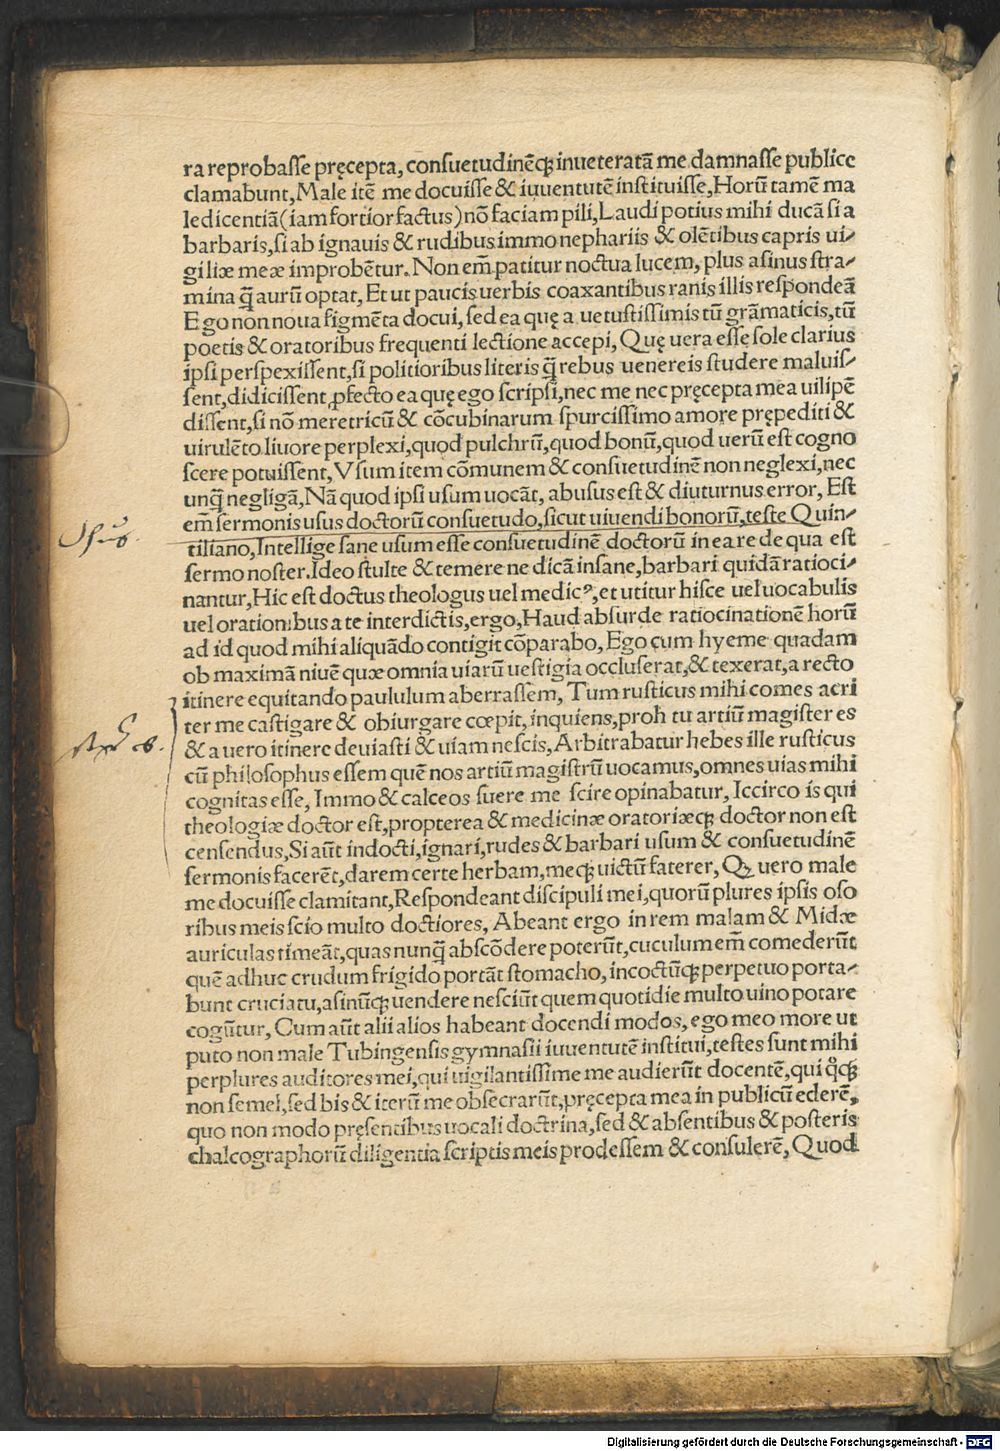 ra reprobaſſe pręcepta, conſuetudinēq; inueteratā me damnaſſe publice
clamabunt, Male itē me docuiſſe & iuuentutē inſtituiſſe, Horū tamē ma
ledicentiā (iam fortior factus) nō faciam pili, Laudi potius mihi ducā ſi a
barbaris, ſi ab ignauis & rudibus immo nephariis & olētibus capris ui⸗
giliæ meæ improbētur. Non em̄ patitur noctua lucem, plus aſinus ſtra⸗
mina q̄ aurū optat, Et ut paucis uerbis coaxantibus ranis illis reſpondeā
Ego non noua figmēta docui, ſed ea quę a uetuſtiſſimis tū grāmaticis, tū
poetis & oratoribus frequenti lectione accepi, Quę uera eſſe ſole clarius
ipſi perſpexiſſent, ſi politioribus literis q̄ rebus uenereis ſtudere maluiſ⸗
ſent, didiciſſent ꝓfecto ea quę ego ſcripſi, nec me nec pręcepta mea uilipē
diſſent, ſi nō meretricū & cōcubinarum ſpurciſſimo amore prępediti &
uirulēto liuore perplexi, quod pulchrū, quod bonū, quod uerū eſt cogno
ſcere potuiſſent, Vſum item cōmunem & conſuetudinē non neglexi, nec
unq̄ negligā, Nā quod ipſi uſum uocāt, abuſus eſt & diuturnus error, Eſt
em̄ ſermonis uſus doctorū conſuetudo, ſicut uiuendi bonorū, teſte Quin⸗
tiliano, Intellige ſane uſum eſſe conſuetudinē doctorū in ea re de qua eſt
ſermo noſter. Ideo ſtulte & temere ne dicā inſane, barbari quidā ratioci⸗
nantur, Hic eſt doctus theologus uel medicꝰ, et utitur hiſce uel uocabulis
uel orationibus a te interdictis, ergo, Haud abſurde ratiocinationē horū
ad id quod mihi aliquādo contigit cōparabo, Ego cum hyeme quadam
ob maximā niuē quæ omnia uiarū ueſtigia occluſerat, & texerat, a recto
itinere equitando paululum aberraſſem, Tum ruſticus mihi comes acri
ter me caſtigare & obiurgare cœpit, inquiens, proh tu artiū magiſter es
& a uero itinere deuiaſti & uiam neſcis, Arbitrabatur hebes ille ruſticus
cū philoſophus eſſem quē nos artiū magiſtrū uocamus, omnes uias mihi
cognitas eſſe, Immo & calceos ſuere me ſcire opinabatur, Iccirco is qui
theologiæ doctor eſt, propterea & medicinæ oratoriæq; doctor non eſt
cenſendus, Si aūt indocti, ignari, rudes & barbari uſum & conſuetudinē
ſermonis facerēt, darem certe herbam, meq; uictū faterer, Qꝫ uero male
me docuiſſe clamitant, Reſpondeant diſcipuli mei, quorū plures ipſis oſo
ribus meis ſcio multo doctiores, Abeant ergo in rem malam & Midæ
auriculas timeāt, quas nunq̄ abſcōdere poterūt, cuculum em̄ comederūt
quē adhuc crudum frigido portāt ſtomacho, incoctūq; perpetuo porta⸗
bunt cruciatu, aſinūq; uendere neſciūt quem quotidie multo uino potare
cogūtur, Cum aūt alii alios habeant docendi modos, ego meo more ut
puto non male Tubingenſis gymnaſii iuuentutē inſtitui, teſtes ſunt mihi
perplures auditores mei, qui uigilantiſſime me audierūt docentē, qui q̊q;
non ſemel, ſed bis & iterū me obſecrarūt, pręcepta mea in publicū ederē,
quo non modo pręſentibus uocali doctrina, ſed & abſentibus & poſteris
chalcographorū diligentia ſcriptis meis prodeſſem & conſulerē, Quod
Digitalisierung gefördert durch die Deutsche Forschungsgemeinschaft - DFG